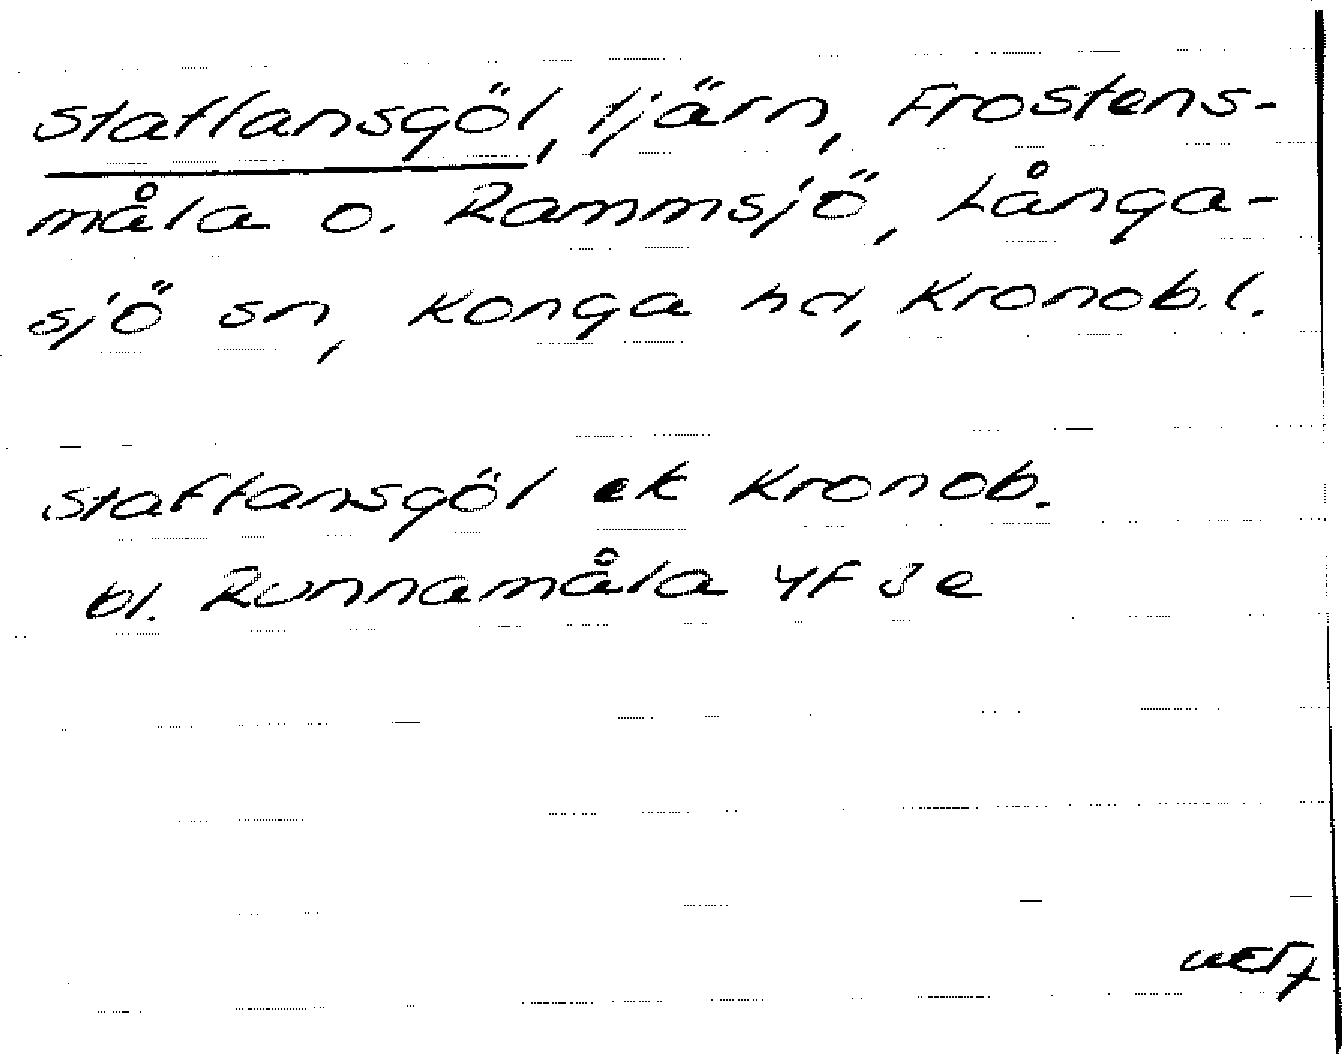 Staffansgöl, tjärn, Frostens-
måla o. Rammsjö, Långa-
sjö sn, Konga hd, Kronob.l.
Staffansgöl ek Kronob.
bl. Runnamåla 4F 3e